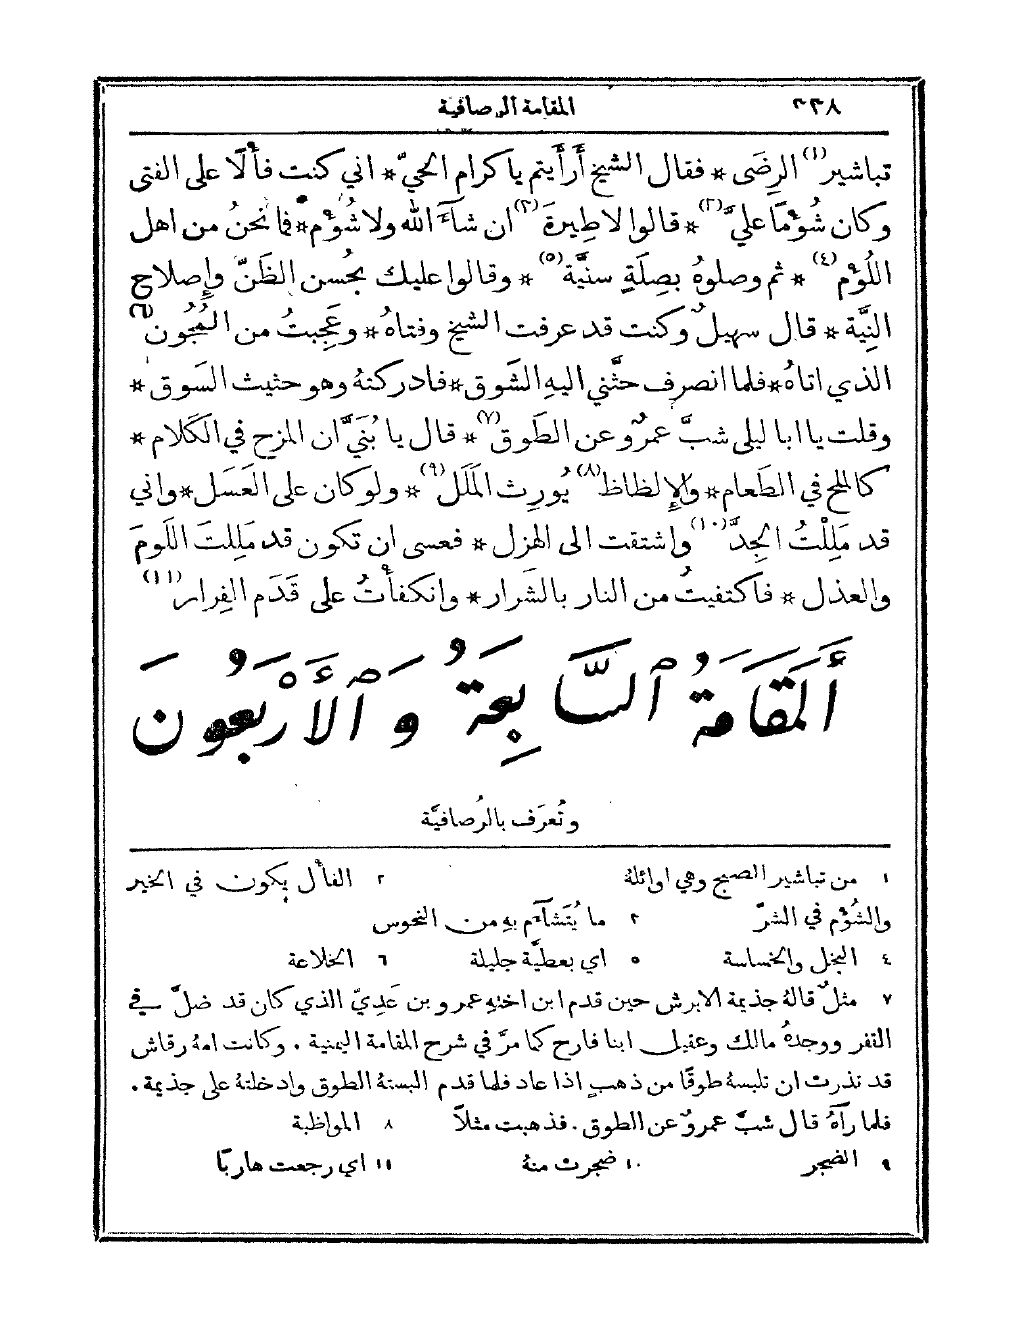 المقامة الرصافية ٣٣٨
تباشير(١) الرِضَى * فقال الشيخ أَرأَيتم يا كرام الحيّ * اني كنت فألًا على الفتى
وكان شُؤْمًا عليَّ(٢) * قالوا لا طِيرةَ(٣) ان شآءَ الله ولا شُؤْم * فما نحنُ من اهل
اللُؤْم(٤) * ثم وصلوهُ بصِلَةٍ سنيَّة(٥) * وقالوا عليك بحُسن الظَنّ وإِصلاح
النِيَّة * قال سهيلٌ وكنت قد عرفت الشيخ وفتاهُ * وعَجِبتُ من المُجُون(٦)
الذي اتاهُ * فلما انصرف حثَّني اليهِ الشَوق * فادركتهُ وهو حثيث السَوق *
وقلت يا ابا ليلى شبَّ عمرٌو عن الطَوق(٧) * قال يا بُنَيَّ ان المزح في الكَلام *
كالملح في الطَعام * والإِلظاظ(٨) يُورِث المَلَل(٩) * ولو كان على العَسَل * واني
قد مَلِلْتُ الجِدَّ(١٠) واشتقت الى الهزل * فعسى ان تكون قد مَلِلتَ اللَومَ
والعذل * فاكتفيتُ من النار بالشَرار * وانكفأتُ على قَدَم الفِرار(١١)
أَلمَقَامَةُ ٱلسَّابِعَةُ وَٱلأَرْبَعُونَ
وتُعرَف بالرُصافيَّة
١ من تباشير الصبح وهي اوائلهُ ٢ الفأل يكون في الخير
والشُؤْم في الشرّ ٣ ما يُتَشآءَم بهِ من النحوس
٤ البخل والخساسة ٥ اي بعطيَّة جليلة ٦ الخلاعة
٧ مثلٌ قالهُ جذيمة الابرش حين قدم ابن اختهِ عمرو بن عَدِيّ الذي كان قد ضلَّ في
القفر ووجدهُ مالك وعقيل ابنا فارح كما مرَّ في شرح المقامة اليمنية . وكانت امهُ رقاش
قد نذرت ان تلبسهُ طوقًا من ذهبٍ اذا عاد فلما قدم البستهُ الطوق وادخلتهُ على جذيمة .
فلما رآهُ قال شبَّ عمروٌ عن الطوق . فذهبت مثلًا ٨ المواظبة
٩ الضجر ١٠ ضجرت منهُ ١١ اي رجعت هاربًا